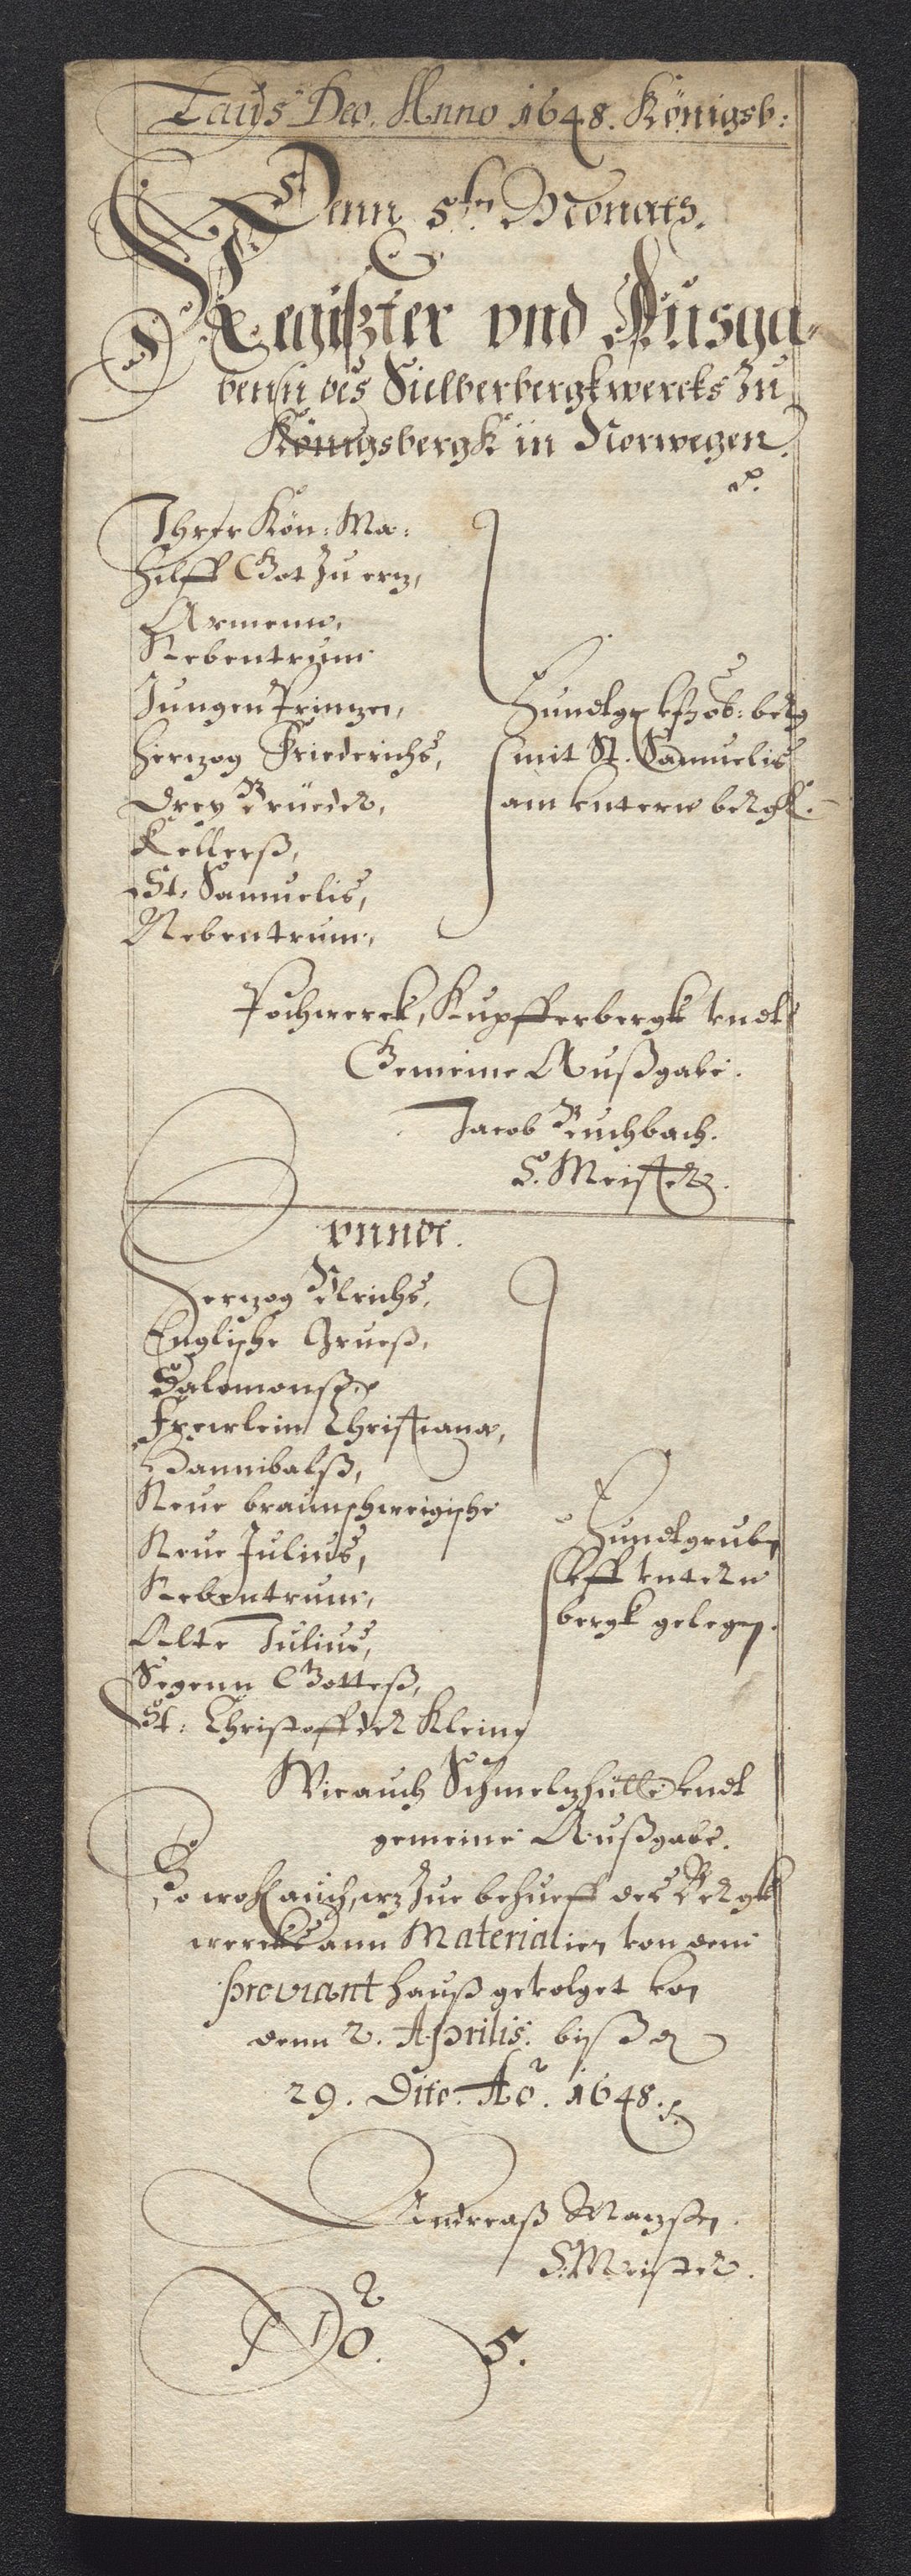 Laus Deo. Anno 1648. Königsb:
Denn 5tn Monats.
Register vnd Ausga-
benn des Sielberbergkwercks Zu
Königsbergk in Norwegen.
Ihrer Kön: Ma:
Hilff Got Zu erz,
Armenn,
Nebentrum
Jungen Printzen,
Hertzog Friederichs,
Drey Brüeder,
Kellerß,
St. Samuelis,
Nebentrum,
Fundtg. vfm ob: berg
mit St. Samuelis
am vnternn bergk.
Pochwerck, Kupfferbergk vndt
Gemeine Außgabe.
Jacob Buchbach.
S. Meister.
vnndt.
Hertzog Ulrichs,
Englische Grueß,
Salomonß,
Frewlein Christiana,
Hannibalß,
Neue braunschweigische
Neue Julius,
Nebentrum,
Alte Julius,
Segenn Gotteß,
St: Christoff der Kleine
Fundtgruben
vff vntern
bergk gelegen.
Wie auch Schmeltzhütte vndt
gemeine Außgabe.
So wohl auch, wz Zue behueff des Bergk
wercks ann Materialien von dem
proviant hauß gevolget von
denn 2. Aprilis. biß den
29. Dito. Ao. 1648.
Andreaß
S. Meister.
No. 5.